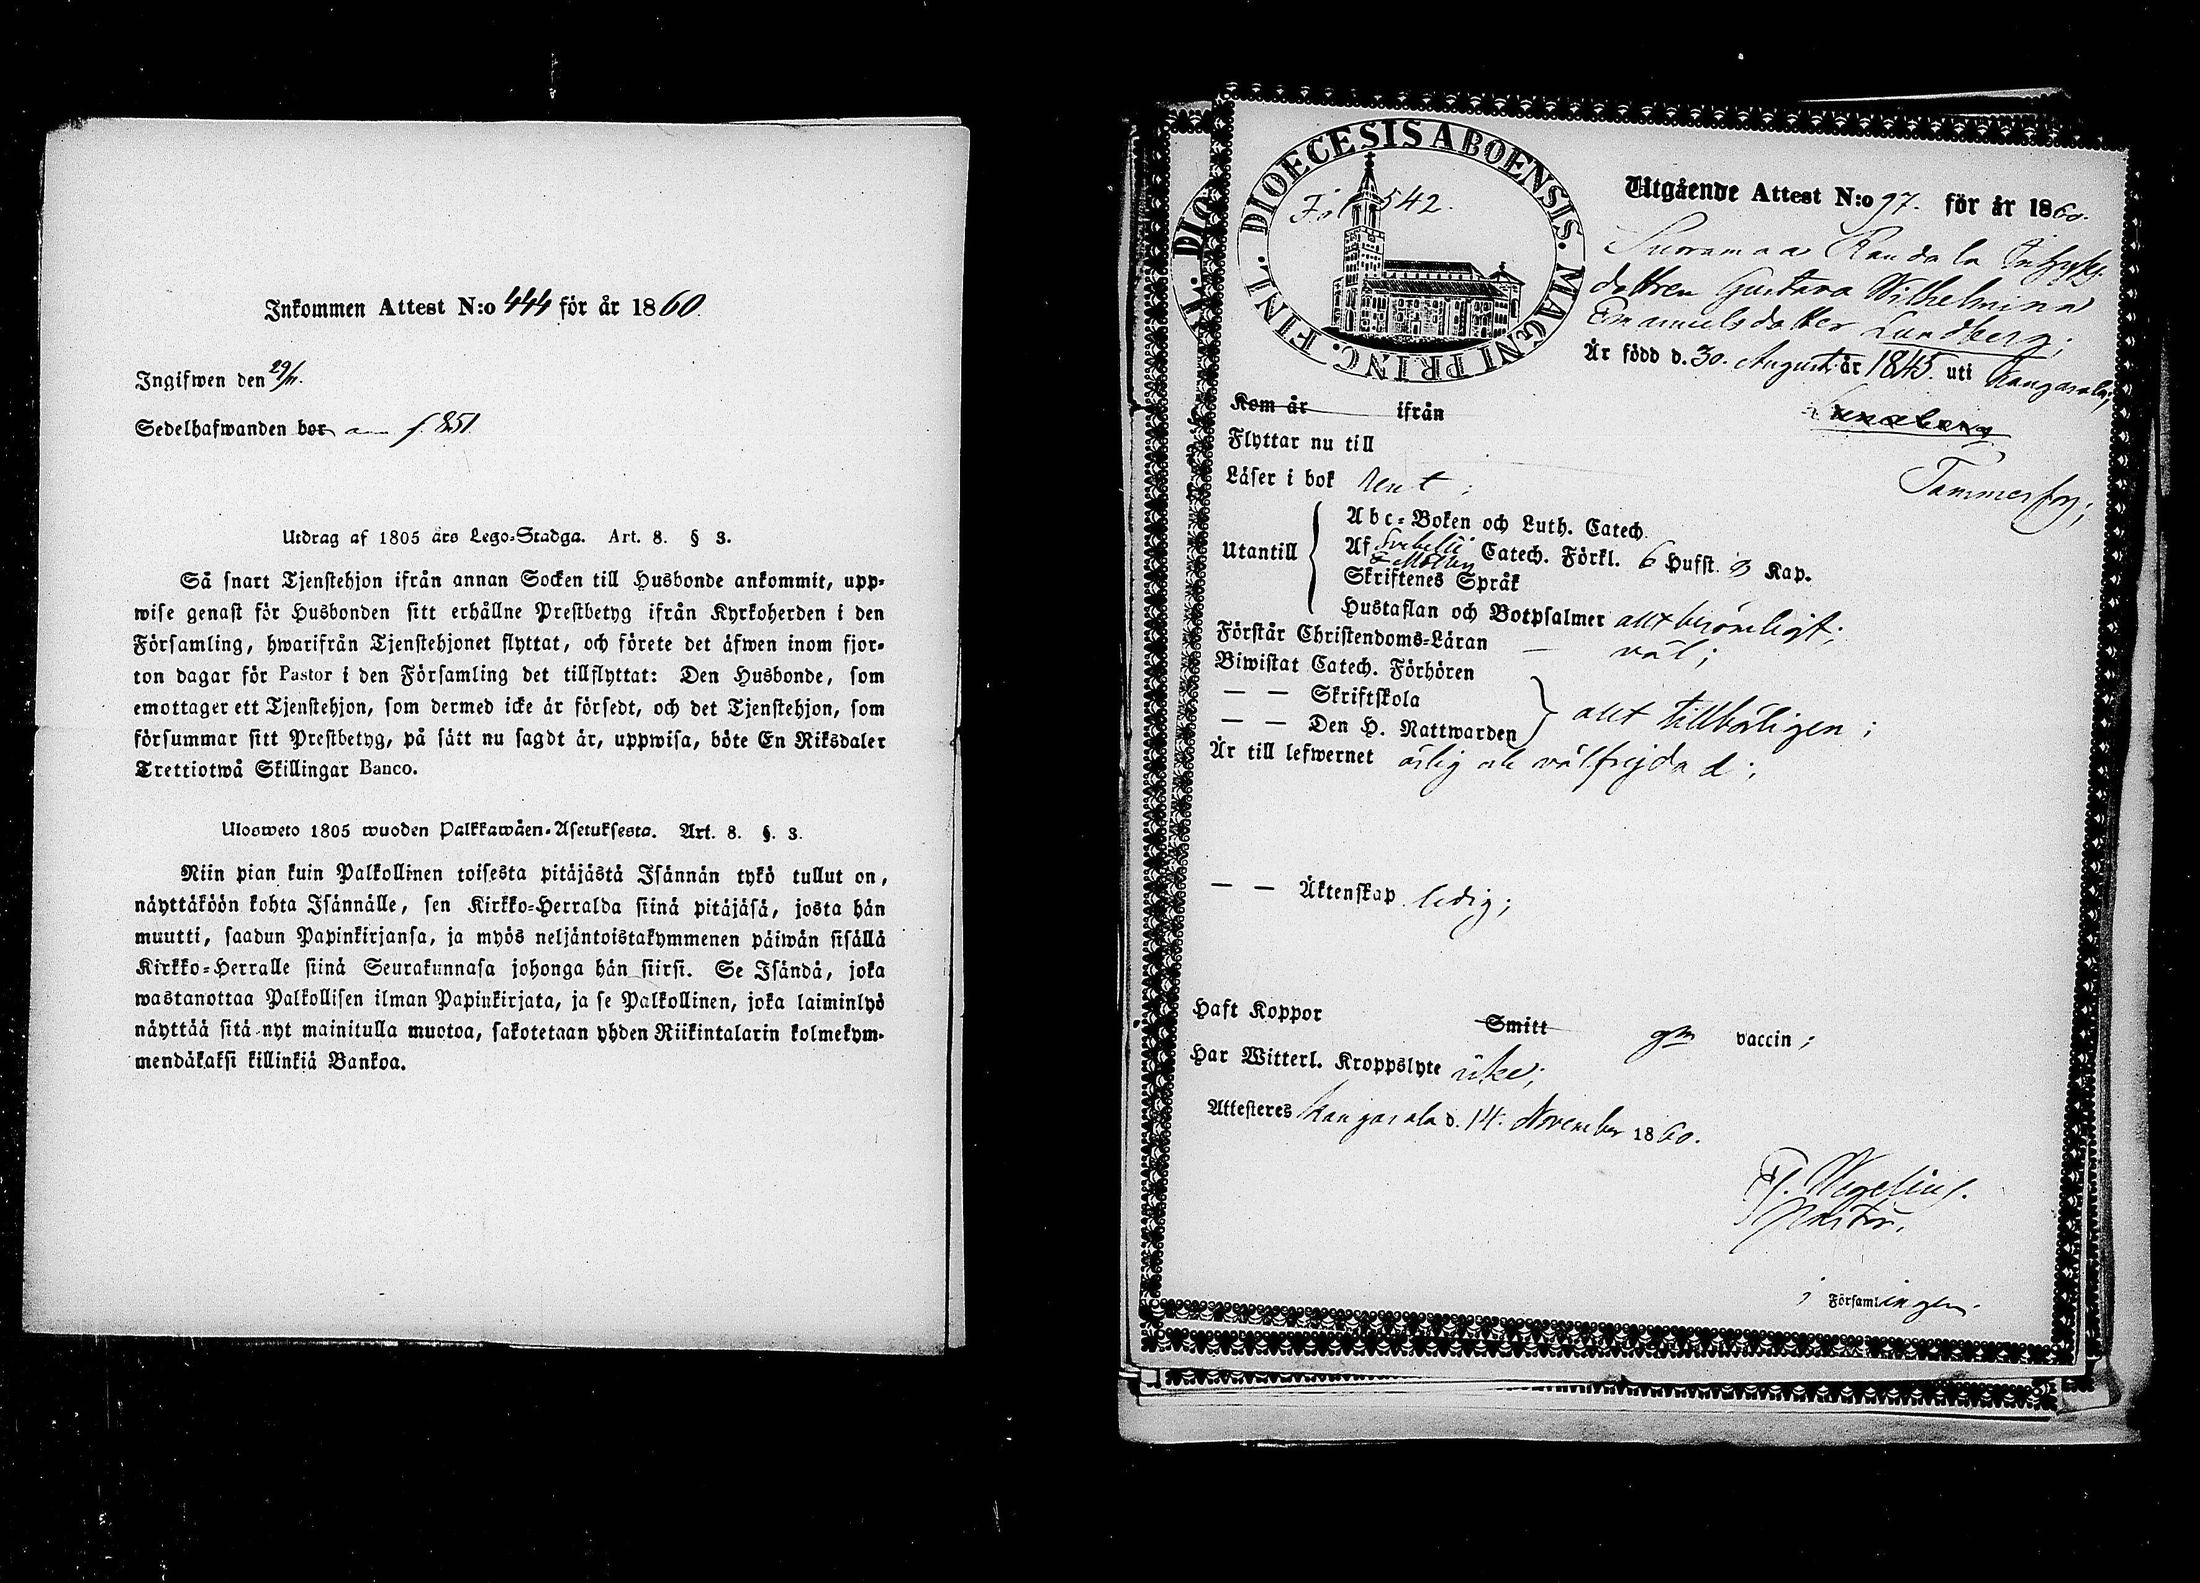 Inkommen Attest N:o 444 för år 1860.
Ingifwen den 29/11.
Sedelhafwanden bor f. 851.
Utdrag af 1805 års Lego-Stadga. Art. 8. § 3.
Så snart Tjenstehjon ifrån annan Socken till Husbonde ankommit, upp-
wise genast för Husbonden sitt erhållne Prestbetyg ifrån Kyrkoherden i den
Församling, hwarifrån Tjenstehjonet flyttat, och förete det äfwen inom fjor-
ton dagar för Pastor i den Församling det tillflyttat: Den Husbonde, som
emottager ett Tjenstehjon, som dermed icke är försedt, och det Tjenstehjon, som
försummar sitt Prestbetyg, på sätt nu sagdt är, uppwisa, böte En Riksdaler
Trettiotwå Skillingar Banco.
Ulosweto 1805 wuoden Palkkawäen-Asetuksesta. Art. 8. §. 3.
Niin pian kuin Palkollinen toisesta pitäjästä Isännän tykö tullut on,
näyttäköön kohta Isännälle, sen Kirkko-Herralda siinä pitäjäsä, josta hän
muutti, saadun Papinkirjansa, ja myös neljäntoistakymmenen päiwän sisällä
Kirkko-Herralle siinä Seurakunnasa johonga hän siirsi. Se Isändä, joka
wastanottaa Palkollisen ilman Papinkirjata, ja se Palkollinen, joka laiminlyö
näyttää sitä nyt mainitulla muotoa, sakotetaan yhden Riikintalarin kolmekym-
mendäkaksi killinkiä Bankoa.
FINL. DIOECESIS ABOENSIS. MAGNI PRINC.
Fol 542.
Utgående Attest N:o 97. för år 1860.
Suoramaa Kandala
dottren Gustava Wilhelmina
Emanuelsdotter Lundberg;
Är född d. 30. August. år 1845. uti Kangasala;
Kom år ifrån
Flyttar nu till Tammerfors;
Läser i bok rent;
Utantill
Abc-Boken och Luth. Catech.
Af Svebelii Catech. Förkl. 6 Hufst. 3 Kap.
Skriftenes Språk
Hustaflan och Botpsalmer allt berömligt;
Förstår Christendoms-Läran — väl;
Biwistat Catech. Förhören
— — Skriftskola
— — Den H. Nattwarden allt tillbörligen;
Är till lefwernet ärlig och välfrejdad;
— — Äktenskap ledig;
Haft Koppor Smitt gm vaccin;
Har Witterl. Kroppslyte icke;
Attesteres Kangasala d. 14. November 1860.
Fr. Wegelius.
Pastor.
i Församlingen.